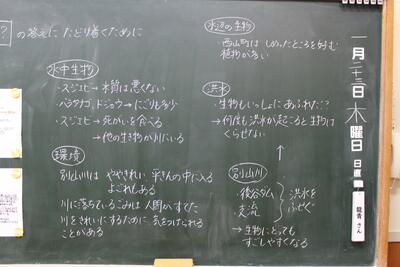 ? の答えに たどり着くために
水中生物
・スジエビ→水質は悪くない
・バラタナゴ、ドジョウ→にごり多少
・スジエビ→死がいを食べる
→他の生物が川にいる
環境
別山川は ややきれい 平さんの中に入る
よごれもある
川に落ちているごみは人間がすてた
川をきれいにするために 気をつけられる
ことがある
水辺の生物
・西山町は しめったところを好む
植物が多い
洪水
・生物もいっしょにあふれた!?
→何度も洪水が起こると生物は
くらせない
別山川
・後谷ダム
・支流
洪水を
ふせぐ
→生物にとっても
すごしやすくなる
一月二十三日 木曜日
日直
龍青 さん